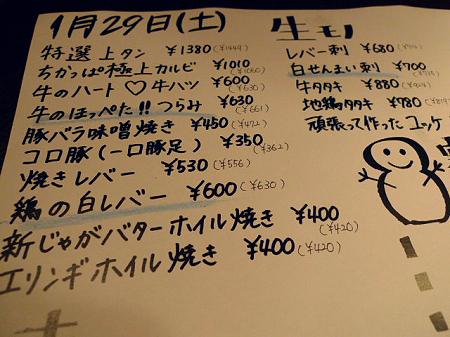 1月29日(土)
特選上タン ¥1380(¥1449)
ちかっぱ極上カルビ ¥1010(¥1060)
牛のハート♡牛ハツ ¥600(¥630)
牛のほっぺた!!つらみ ¥630(¥661)
豚バラ味噌焼き ¥450(¥472)
コロ豚(一口豚足) ¥350(¥362)
焼きレバー ¥530(¥556)
鶏の白レバー ¥600(¥630)
新じゃがバターホイル焼き ¥400(¥420)
エリンギホイル焼き ¥400(¥420)
生モノ
レバー刺 ¥680
白せんまい刺 ¥700
牛タタキ ¥880
地鶏タタキ ¥780(¥819
頑張って作ったユッケ